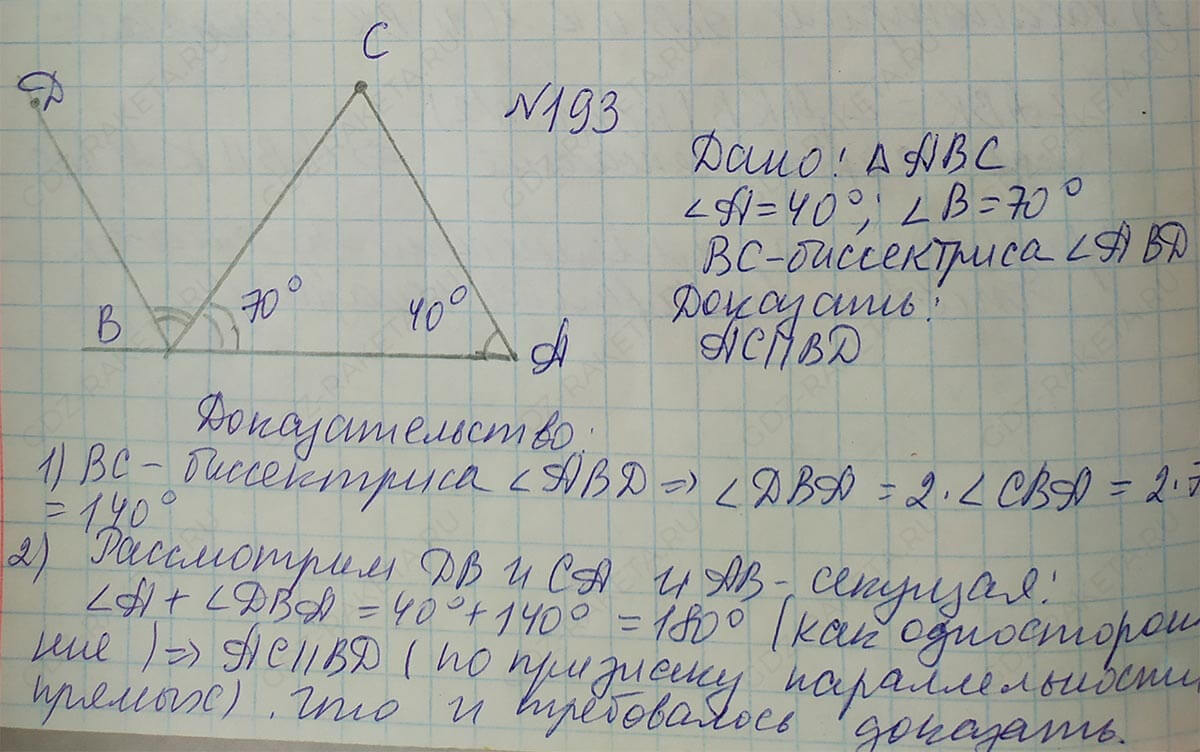 D
C
№193
Дано: △ ABC
∠A=40°; ∠B=70°
BC-биссектриса ∠ABD
Доказать:
AC||BD
B
70°
40°
A
Доказательство:
1) BC - биссектриса ∠ABD => ∠DBA = 2·∠CBA = 2·7
= 140°
2) Рассмотрим DB и CA и AB- секущая:
∠A + ∠DBA = 40°+140° = 180° (как односторон
ние) => AC||BD (по признаку параллельности
прямых). Что и требовалось доказать.
GDZ-RAKETA.RU